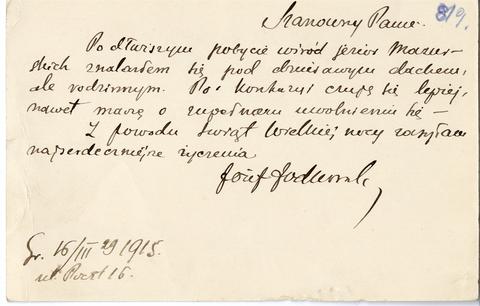 8/9.
Szanowny Panie.
Po dłuższym pobycie wśród jezior Mazurskich
znalazłem się pod dawnym dachem,
ale rodzinnym. Po kontuzji czuję się lepiej,
nawet marzę o zupełnem uwolnieniu się –
Z powodu Świąt Wielkiej nocy zasyłam
najserdeczniejsze życzenia
Józef Jodkowski
Gr. 16/III 29 1915.
ul. Poczt 16.